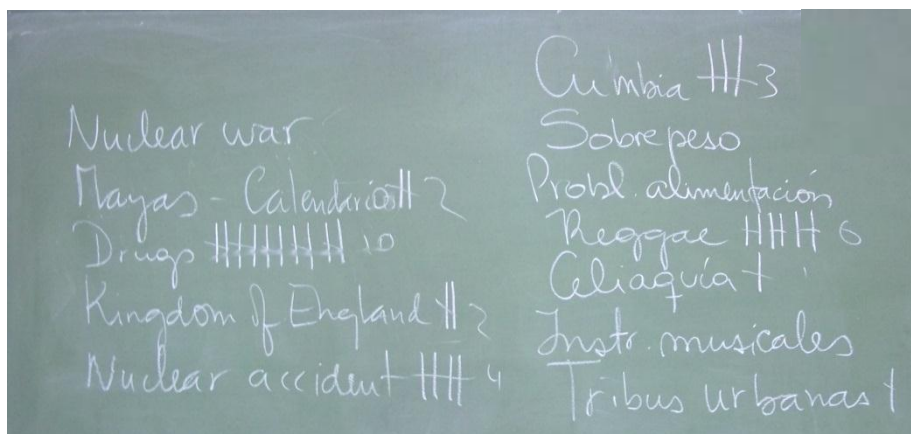 Nuclear war
Mayas - Calendarios 2
Drugs 10
Kingdom of England 2
Nuclear accident 4
Cumbia 3
Sobrepeso
Probl. alimentación
Reggae 6
Celiaquía
Instr. musicales
Tribus urbanas